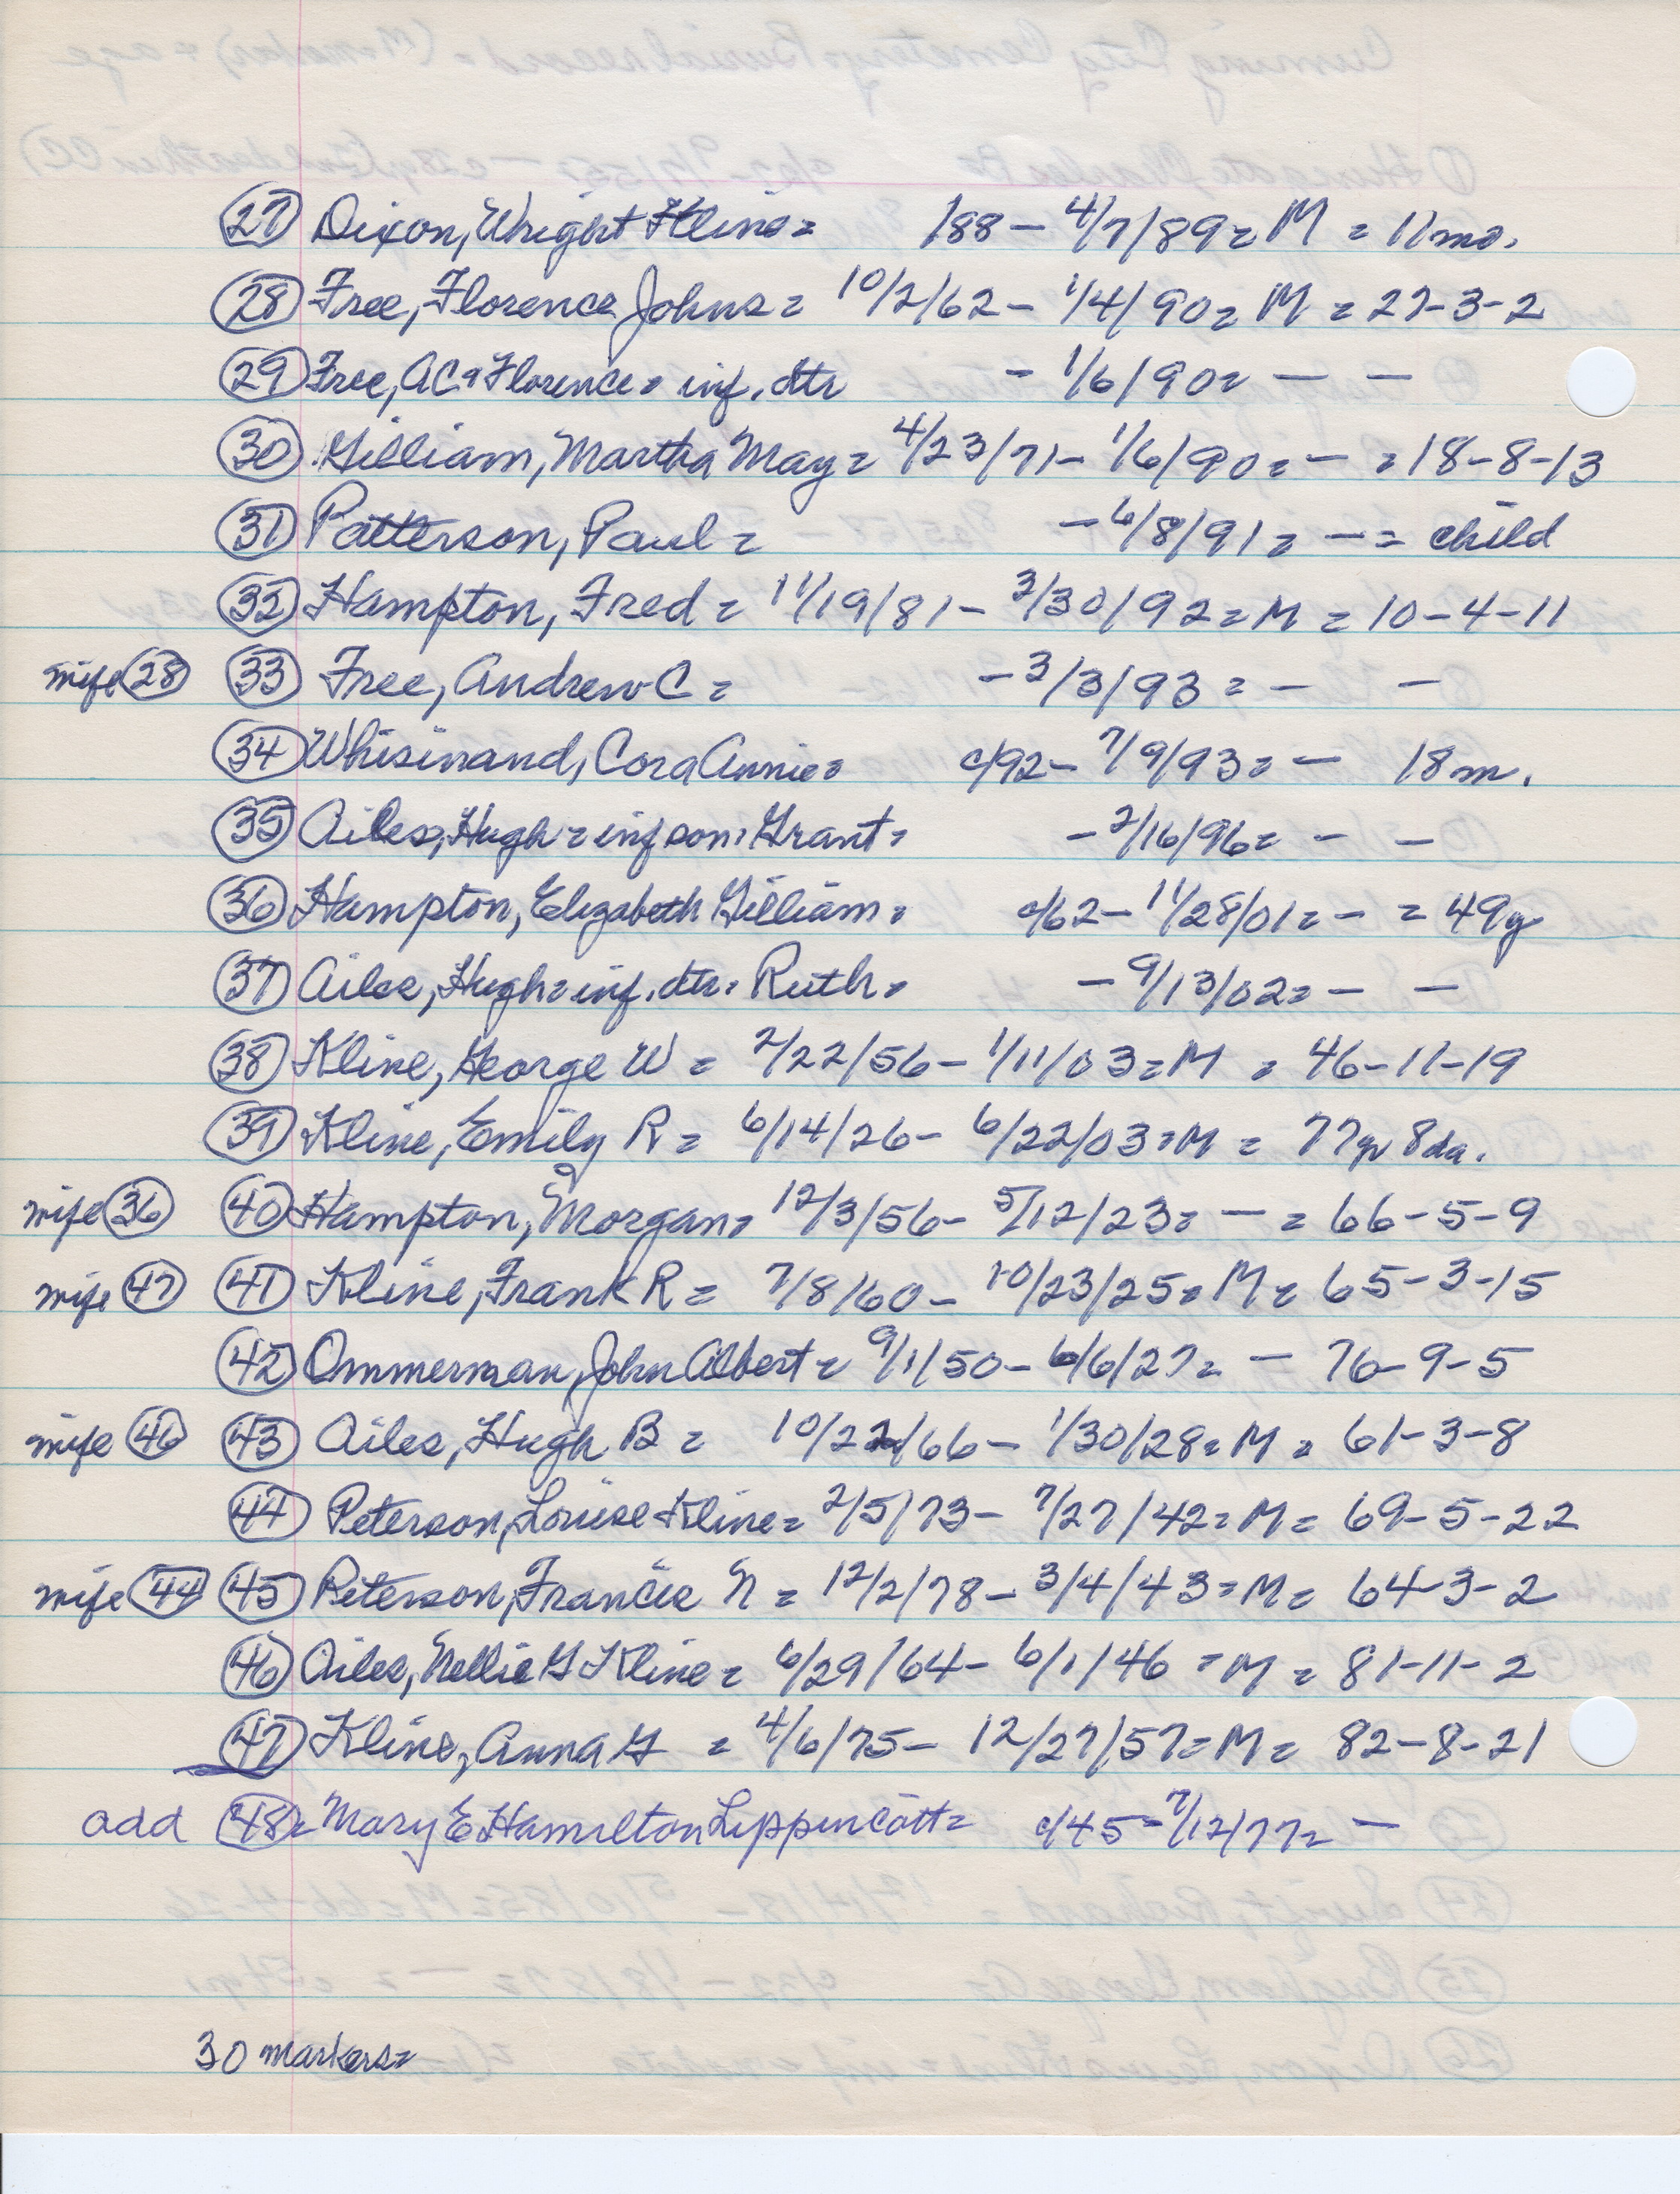 27 Dixon, Wright Kline = /88 - 4/7/89 = M = 11 mo.
28 Free, Florence Johns = 10/2/62 - 1/4/90 = M = 27-3-2
29 Free, AC & Florence = inf. dtr - 1/6/90 = - -
30 Gilliam, Martha May = 4/23/71 - 1/6/90 = - = 18-8-13
31 Patterson, Paul = - 6/8/91 = - = child
32 Hampton, Fred = 11/19/81 - 3/30/92 = M = 10-4-11
wife 28 33 Free, Andrew C = - 3/3/93 = - -
34 Whisinand, Cora Annie = c/92 - 7/9/93 = - 18 m.
35 Ailes, Hugh = inf son, Grant = - 2/16/96 = - -
36 Hampton, Elizabeth Gilliam = c/62 - 11/28/01 = - = 49y
37 Ailes, Hugh = inf. dtr. Ruth = - 9/13/02 = - -
38 Kline, George W = 2/22/56 - 1/11/03 = M = 46-11-19
39 Kline, Emily R = 6/14/26 - 6/22/03 = M = 77yr 8da.
wife 36 40 Hampton, Morgan = 12/3/56 - 5/12/23 = - = 66-5-9
wife 47 41 Kline, Frank R = 7/8/60 - 10/23/25 = M = 65-3-15
42 Ommerman, John Albert = 9/1/50 - 6/6/27 = - 76-9-5
wife 46 43 Ailes, Hugh B = 10/22/66 - 1/30/28 = M = 61-3-8
44 Peterson, Louise Kline = 2/5/73 - 7/27/42 = M = 69-5-22
wife 44 45 Peterson, Francis N = 12/2/78 - 3/4/43 = M = 64-3-2
46 Ailes, Nellie G Kline = 6/29/64 - 6/1/46 = M = 81-11-2
47 Kline, Anna G = 4/6/75 - 12/27/57 = M = 82-8-21
add 48 = Mary E Hamilton Lippincott = c/45 - 7/12/77 = -
30 markers =